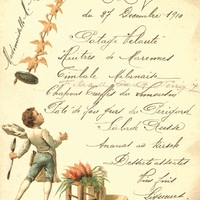 du 27 Décembre 1910
Potage Velouté
Huîtres de Marennes
Timbale Milanaise
Chapons truffés du
Pâté de foie gras du Périgord
Salade Russe
Ananas au kirsch
Desserts assortis
Vins fins
Liqueurs
Mademoiselle